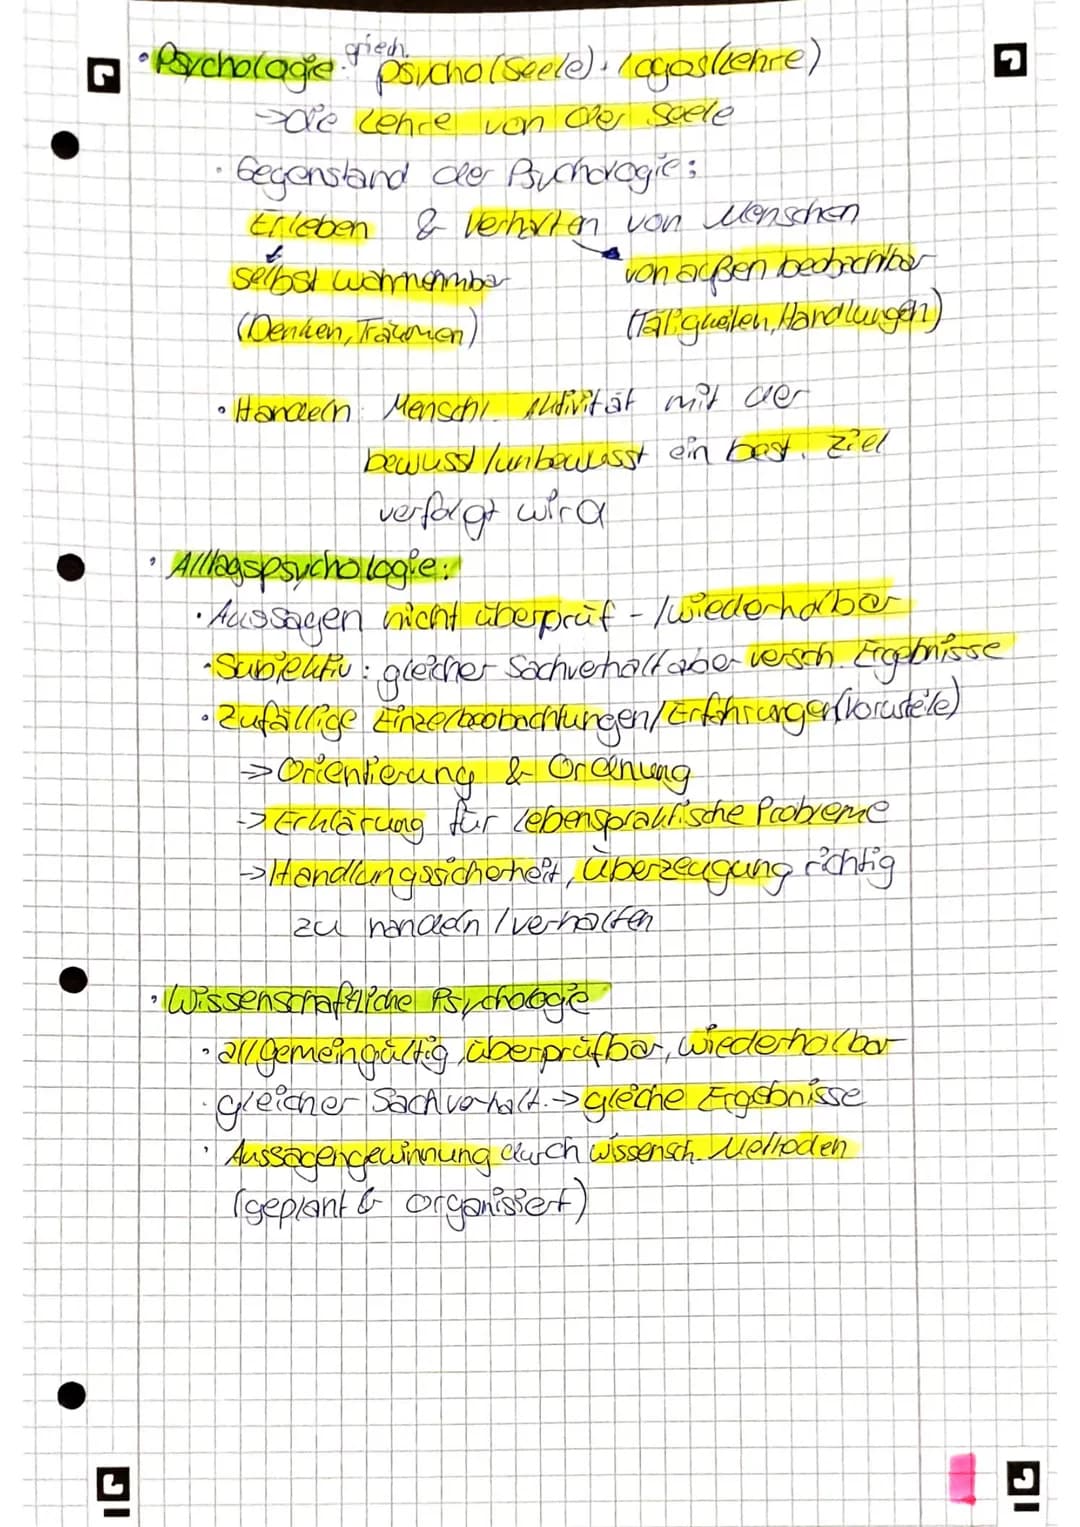 • Psychologie: griech. psycho(Seele) • logos(Lehre)
→ die Lehre von der Seele
• Gegenstand der Psychologie:
Erleben & Verhalten von Menschen
selbst wahrnehmbar von außen beobachtbar
(Denken, Träumen) (Tätigkeiten, Handlungen)
• Handeln: Menschl. Aktivität mit der
bewusst/unbewusst ein best. Ziel
verfolgt wird
• Alltagspsychologie:
• Aussagen nicht überprüf-/wiederholbar
• Subjektiv: gleicher Sachverhalt aber versch. Ergebnisse
• Zufällige Einzelbeobachtungen/Erfahrungen(Vorurteile)
→ Orientierung & Ordnung
→ Erklärung für lebenspraktische Probleme
→ Handlungssicherheit, Überzeugung richtig
zu handeln/verhalten
• Wissenschaftliche Psychologie
• allgemeingültig, überprüfbar, wiederholbar
• gleicher Sachverhalt. → gleiche Ergebnisse
• Aussagengewinnung durch wissensch. Methoden
(geplant & organisiert)